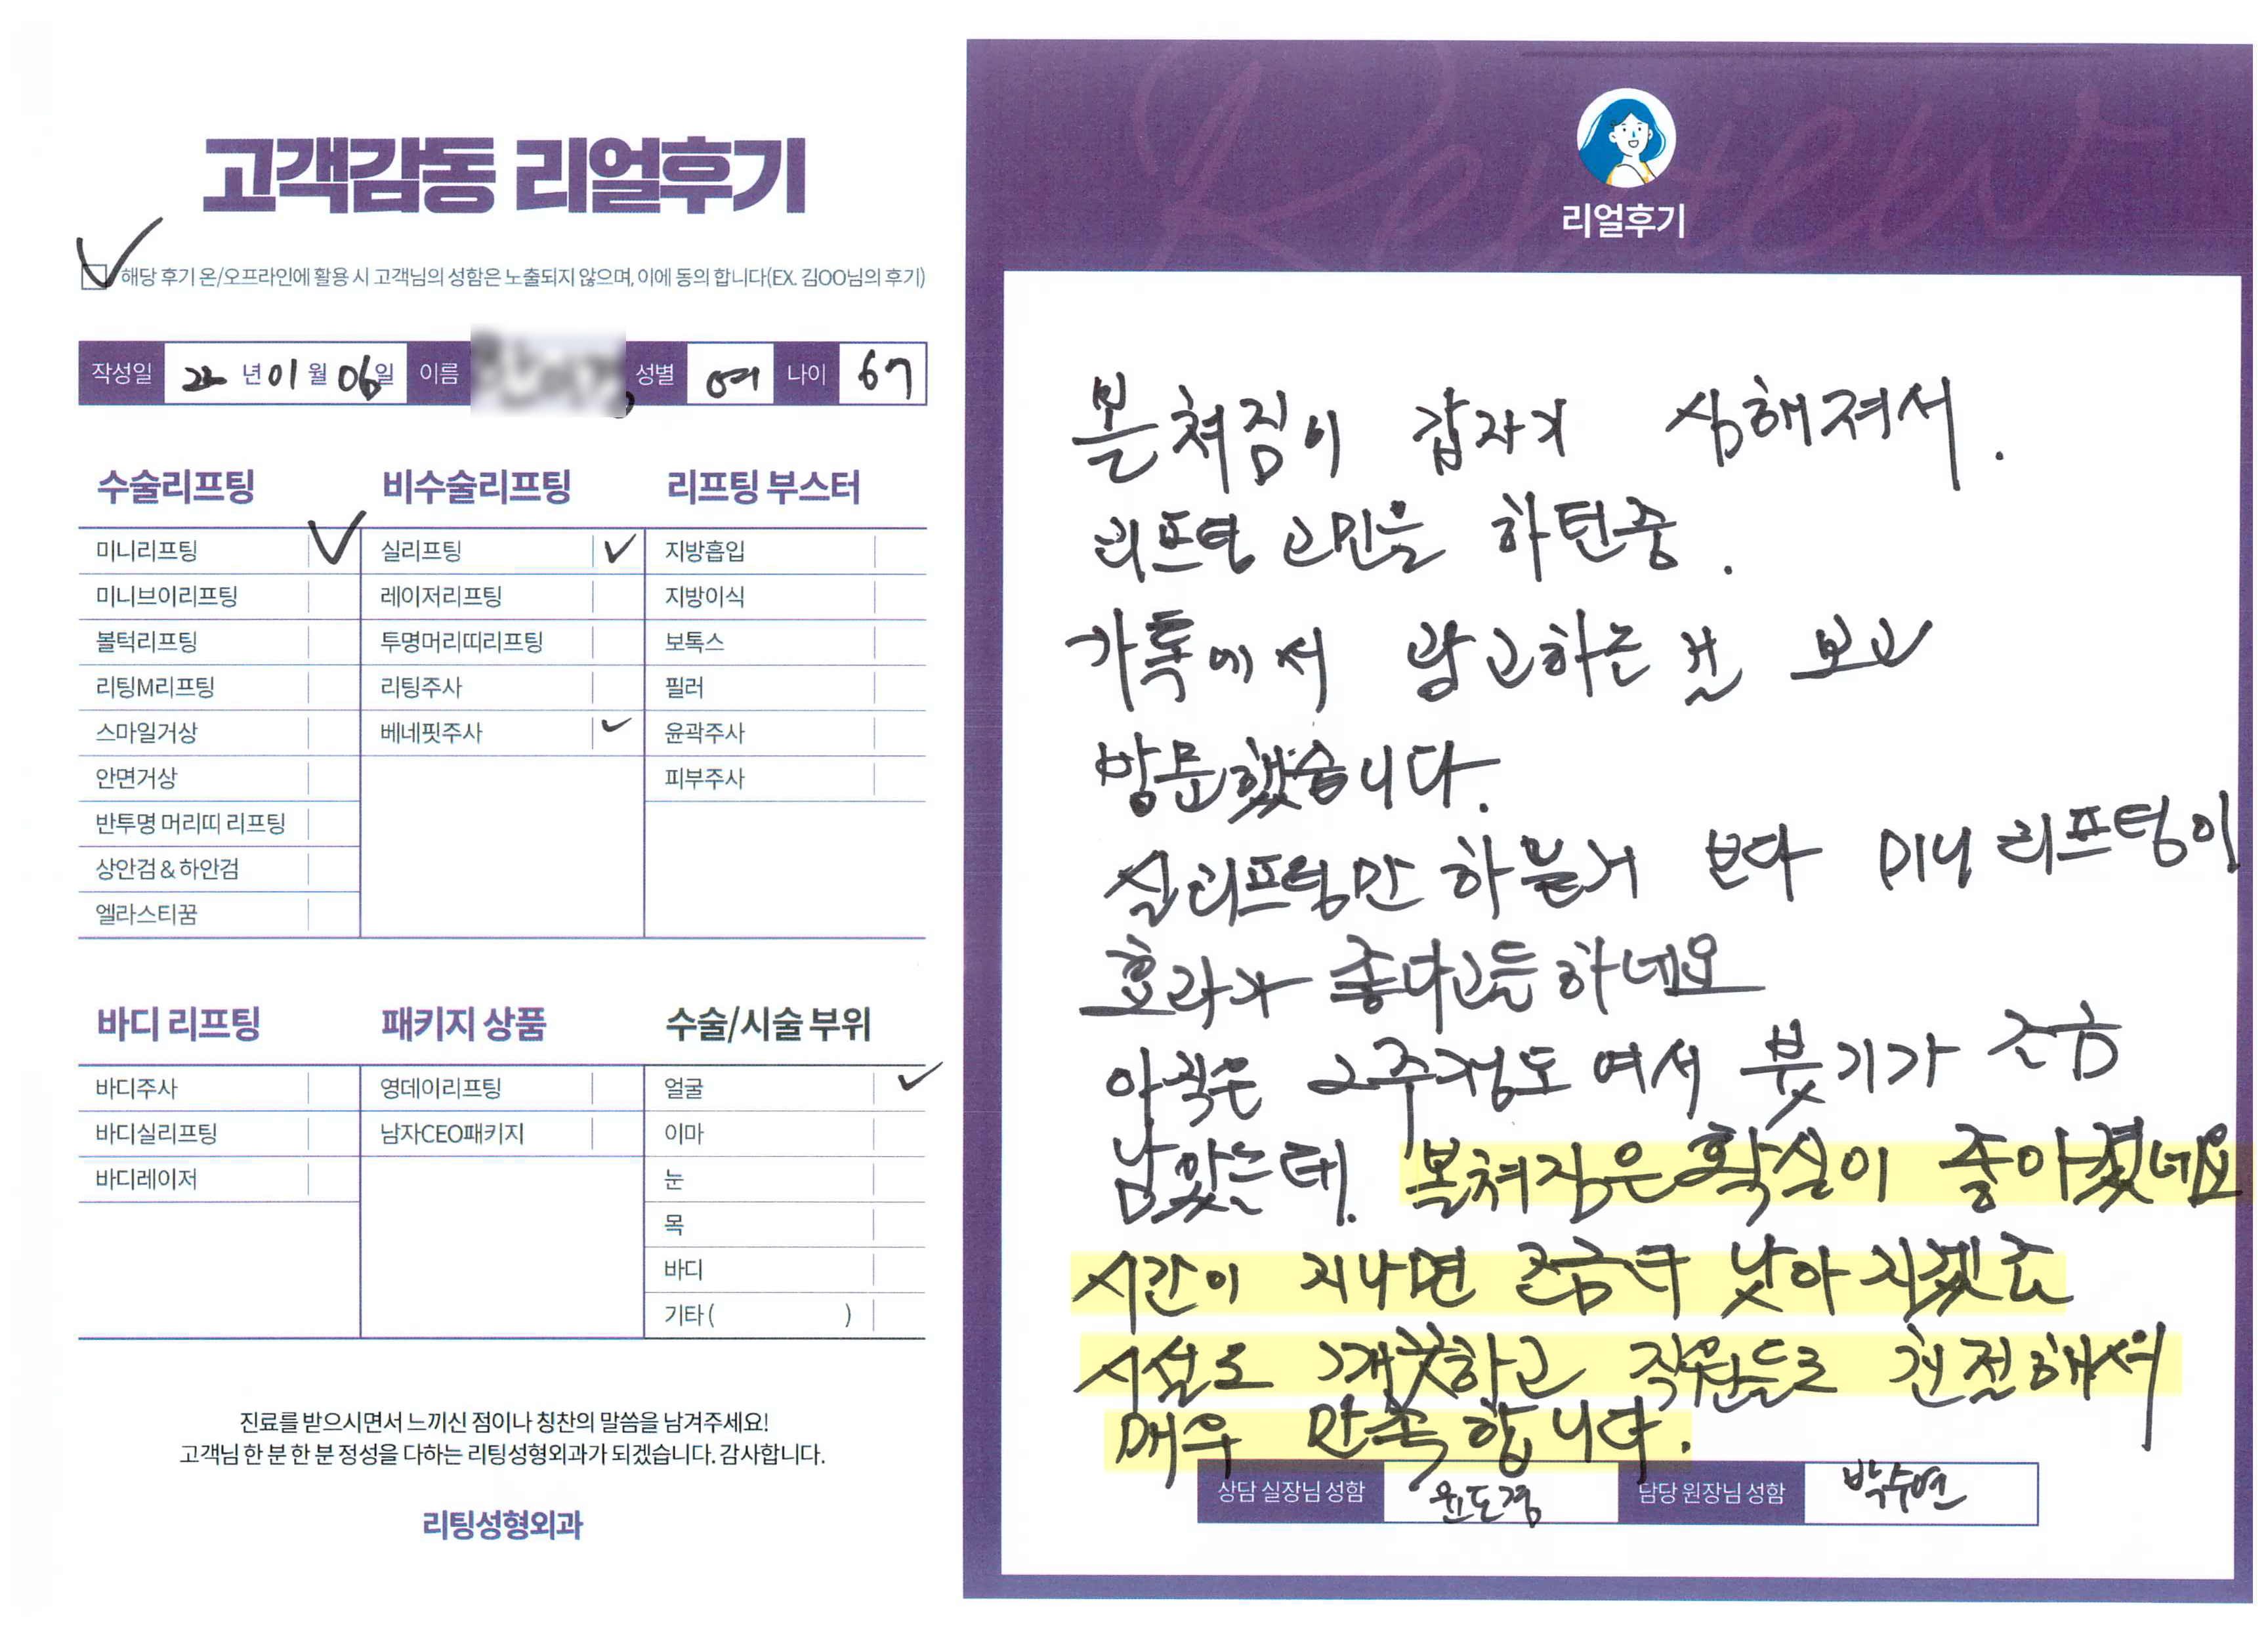 고객감동 리얼후기
해당 후기 온/오프라인에 활용 시 고객님의 성함은 노출되지 않으며, 이에 동의 합니다(EX. 김OO님의 후기)
작성일 22년 01월 06일 이름 성별 여 나이 67
수술리프팅
미니리프팅
미니브이리프팅
볼턱리프팅
리팅M리프팅
스마일거상
안면거상
반투명 머리띠 리프팅
상안검 & 하안검
엘라스티꿈
비수술리프팅
실리프팅
레이저리프팅
투명머리띠리프팅
리팅주사
베네핏주사
리프팅 부스터
지방흡입
지방이식
보톡스
필러
윤곽주사
피부주사
바디 리프팅
바디주사
바디실리프팅
바디레이저
패키지 상품
영데이리프팅
남자CEO패키지
수술/시술 부위
얼굴
이마
눈
목
바디
기타 ( )
진료를 받으시면서 느끼신 점이나 칭찬의 말씀을 남겨주세요!
고객님 한 분 한 분 정성을 다하는 리팅성형외과가 되겠습니다. 감사합니다.
리팅성형외과
Review
리얼후기
볼쳐짐이 갑자기 심해져서.
리프팅 고민을 하던중.
카톡에서 광고하는 걸 보고
방문했습니다.
실리프팅만 하는거 보다 미니 리프팅이
효과가 좋다고들 하네요
아직은 2주정도 여서 붓기가 조금
남았는데. 볼쳐짐은 확실이 좋아졌네요
시간이 지나면 조금더 낫아지겠죠
시설도 깨끗하고 직원들도 친절해서
매우 만족합니다.
상담 실장님 성함 윤도경 담당 원장님 성함 박수연